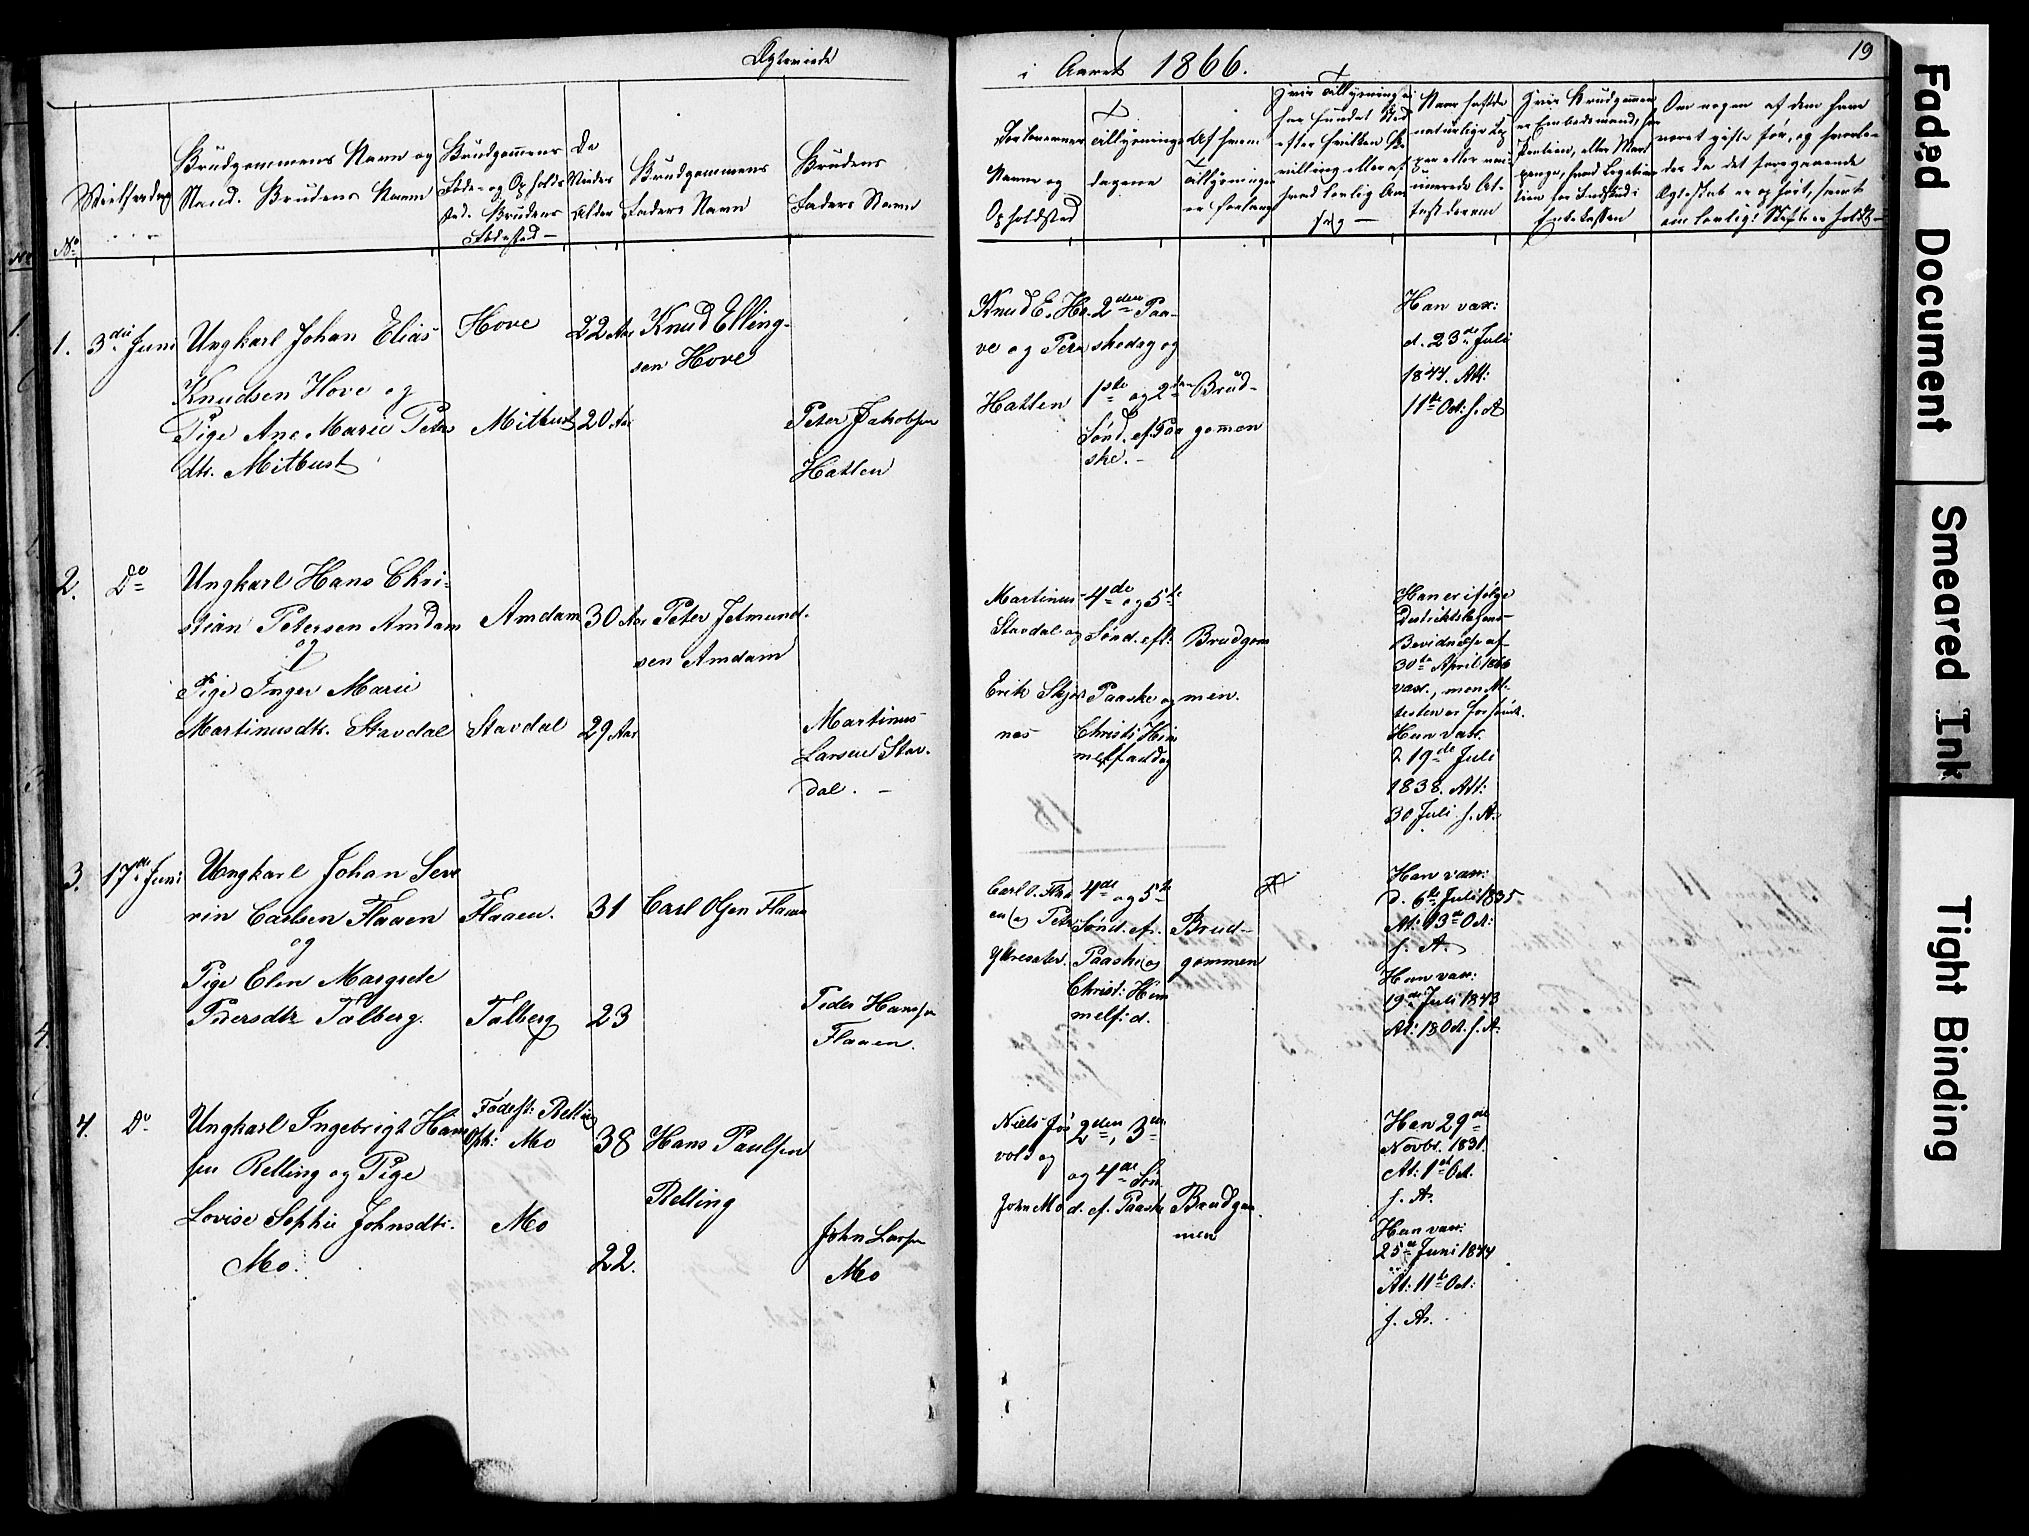 Ægteviede
i Aaret 1866.
19
No
Vielsesdag
Brudgommens Navn og
Stand. Brudens Navn
Brudgomens
Føde- og Opholds
sted. Brudens
Fødested
De
Viedes
Alder
Brudgommens
Faders Navn
Brudens
Faders Navn
Forlovernes
Navne og
Opholdsted
Tillysnings-
dagene
Af hvem
Tillysningen
er forlangt
Naar havde
naturlige Kop
per eller vac-
inerede At-
test derom
Om nogen af dem have
været gifte før, og hvorle-
des da det foregaaende
Ægteskab er ophørt, samt
om lovlig Skifte er holdt
1. 3die Juni
Ungkarl Johan Elias
Knudsen Hove og
Pige Ane Marie Peters
dtr. Mitbust
Hove
Mitbust
22 Aar
20 Aar
Knud Elling-
sen Hove
Peter Jakobsen
Hatlen
Knud E. Ho-
ve og Peter
Hatlen
2den Paa-
skedag og
1ste og 2den
Sønd. ef. Paa
ske. -
Brud-
gomen
Han vax:
d. 23de Juli
1844. Att:
11te Oct: s. A
2. Do
Ungkarl Hans Chri-
stian Petersen Amdam
og
Pige Inger Marie
Martinusdtr. Stavdal
Amdam
Stavdal
30 Aar
29 Aar
Peter Jetmund-
sen Amdam
Martinus
Larsen Stav-
dal. -
Martinus
Stavdal og
Erik Skjos
nes
4de og 5te
Sønd. eft.
Paaske og
Christi Him
melfartdag
Brudgom
men.
Han er ifølge
Destriktslægens
Bevidnelse af
30te April 1866
vax., men At-
testen er forsvundt.
Hun vax.
d 19de Juli
1838. Att:
30 Juli s. A.
18
3. 17de Juni
Ungkarl Johan Seve
rin Carlsen Flaaen
og
Pige Elen Margrete
Pedersdtr Talberg.
Flaaen.
Talberg
31
23
Carl Olsen Flaaen
Peder Hansen
Flaaen.
Carl O. Flaa
en og Peter
Ytresæter.
4de og 5te
Sønd. ef.
Paaske og
Christ: Him
melf: d.
Brud-
gommen
Han vax:
d. 6te Juli 1835.
At: 13de Oct:
s. A.
Hun vax:
19de Juli 1843
At: 18 Oct. s. A.
4. Do
Ungkarl Ingebrigt Han
sen Relling og Pige
Lovise Sophie Johnsdtr.
Mo.
Fødest: Relling
Oph: Mo
Mo
38
22.
Hans Paulsen
Relling
John Larsen
Mo
Niels Jør
vold og
John Mo
2den, 3die
og 4de Søn
d. ef. Paaske
Brudgom
men
Han 29de
Novbr. 1831.
At: 1ste Oct.
s. A.
Hun vax:
25de Juni 1844
At: 11te Oct:
s. A.
Faded Document
Smeared Ink
Tight Binding